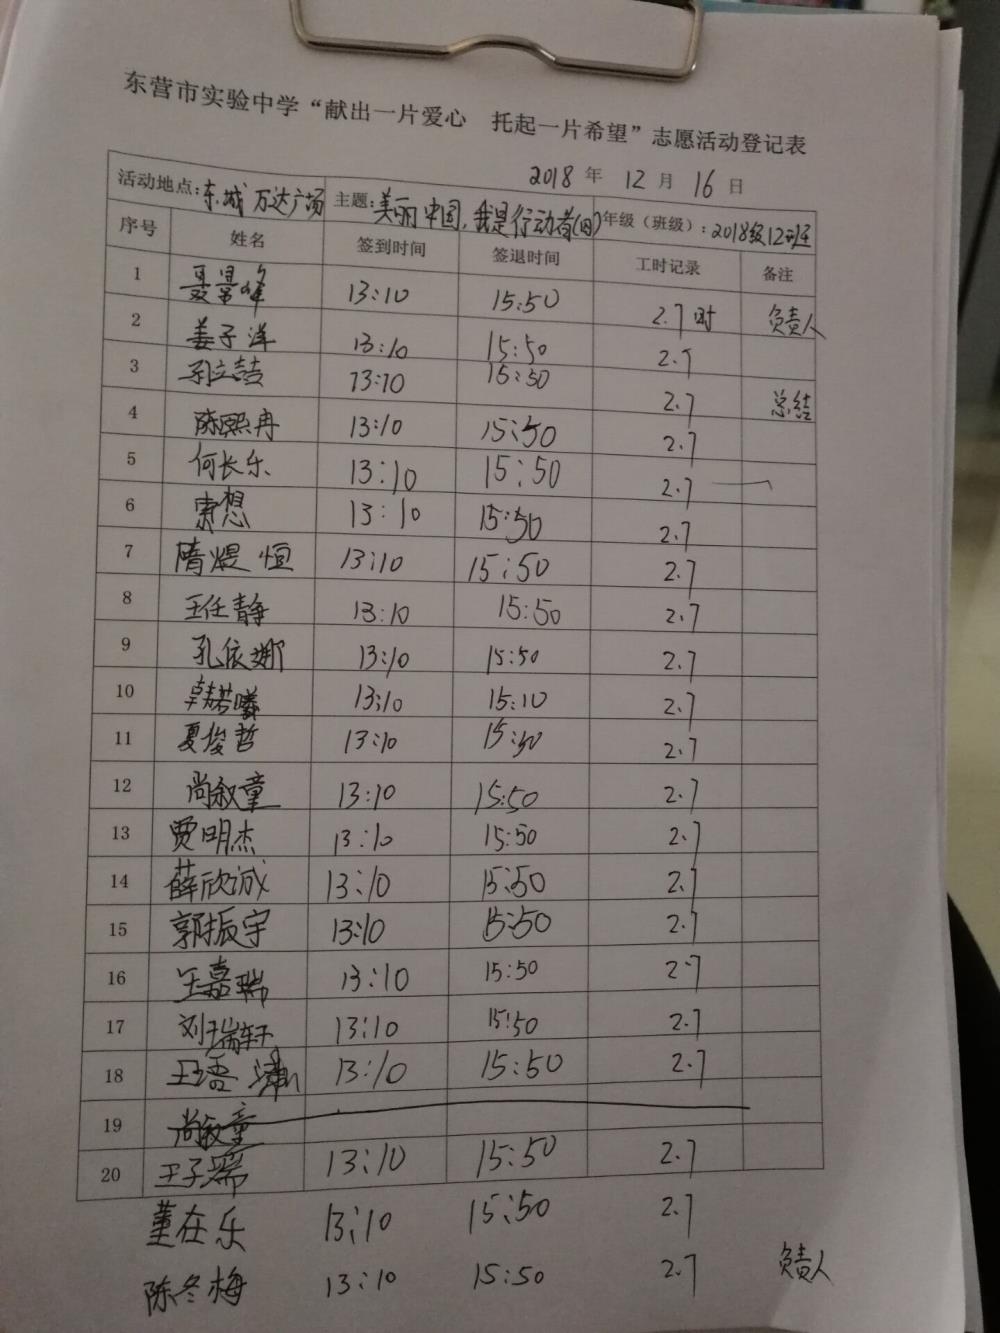 东营市实验中学“献出一片爱心 托起一片希望”志愿活动登记表
2018 年 12 月 16 日
活动地点:东城万达广场 主题:美丽中国,我是行动者(四) 年级(班级):2018级12班
序号 姓名 签到时间 签退时间 工时记录 备注
1 聂景峰 13:10 15:50 2.7时 负责人
2 姜子洋 13:10 15:50 2.7
3 孙立喆 13:10 15:50 2.7 总结
4 陈熙冉 13:10 15:50 2.7
5 何长乐 13:10 15:50 2.7
6 索想 13:10 15:50 2.7
7 隋煜恒 13:10 15:50 2.7
8 王任静 13:10 15:50 2.7
9 孔依娜 13:10 15:50 2.7
10 卓若曦 13:10 15:10 2.7
11 夏俊哲 13:10 15:50 2.7
12 尚叙童 13:10 15:50 2.7
13 贾明杰 13:10 15:50 2.7
14 薛欣诚 13:10 15:50 2.7
15 郭振宇 13:10 15:50 2.7
16 王嘉瑞 13:10 15:50 2.7
17 刘瑞轩 13:10 15:50 2.7
18 王语 13:10 15:50 2.7
19 尚叙童
20 王子瑞 13:10 15:50 2.7
董在乐 13:10 15:50 2.7
陈冬梅 13:10 15:50 2.7 负责人